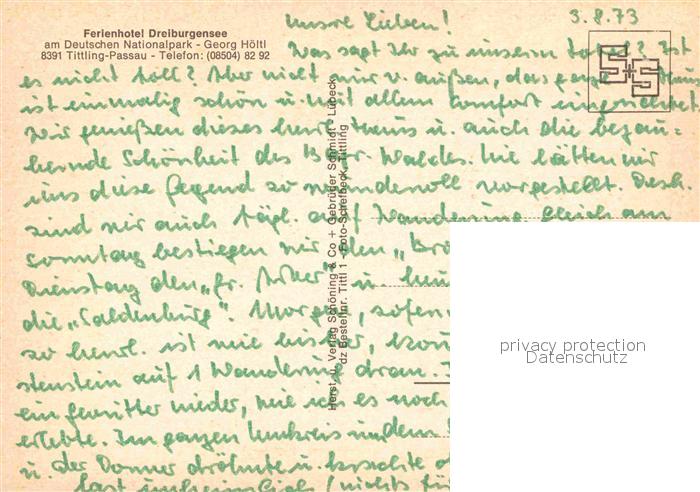 Ferienhotel Dreiburgensee
am Deutschen Nationalpark - Georg Höltl
8391 Tittling-Passau - Telefon: (08504) 82 92
3.8.73
Unsre Lieben!
Was sagt Ihr zu unserem Hotel? Ist
es nicht toll? Aber nicht nur v. außen, das ganze Haus
ist einmalig schön u. mit allem Komfort eingerichtet.
Wir genießen dieses herrl. Haus u. auch die bezau-
bernde Schönheit des Bayr. Waldes. Nie hätten wir
uns diese Gegend so wundervoll vorgestellt. Desh.
sind wir auch tägl. auf Wanderung. Gleich am
Sonntag bestiegen wir den „
Dienstag den „gr. Arber" u.
die „Saldenburg". Morgen, sofern
so herrl. ist wie bisher,
stenstein auf 1 Wanderung dran.
ein Gewitter nieder, wie ich es noch
erlebte. Im ganzen Umkreis
u. der Donner dröhnte u. krachte
fast unheimlich (nichts für
Herst. u. Verlag Schöning & Co + Gebrüder Schmidt - Lübeck
dz Bestellnr. Tittl 1 - Foto-Scheibeck, Tittling
privacy protection
Datenschutz